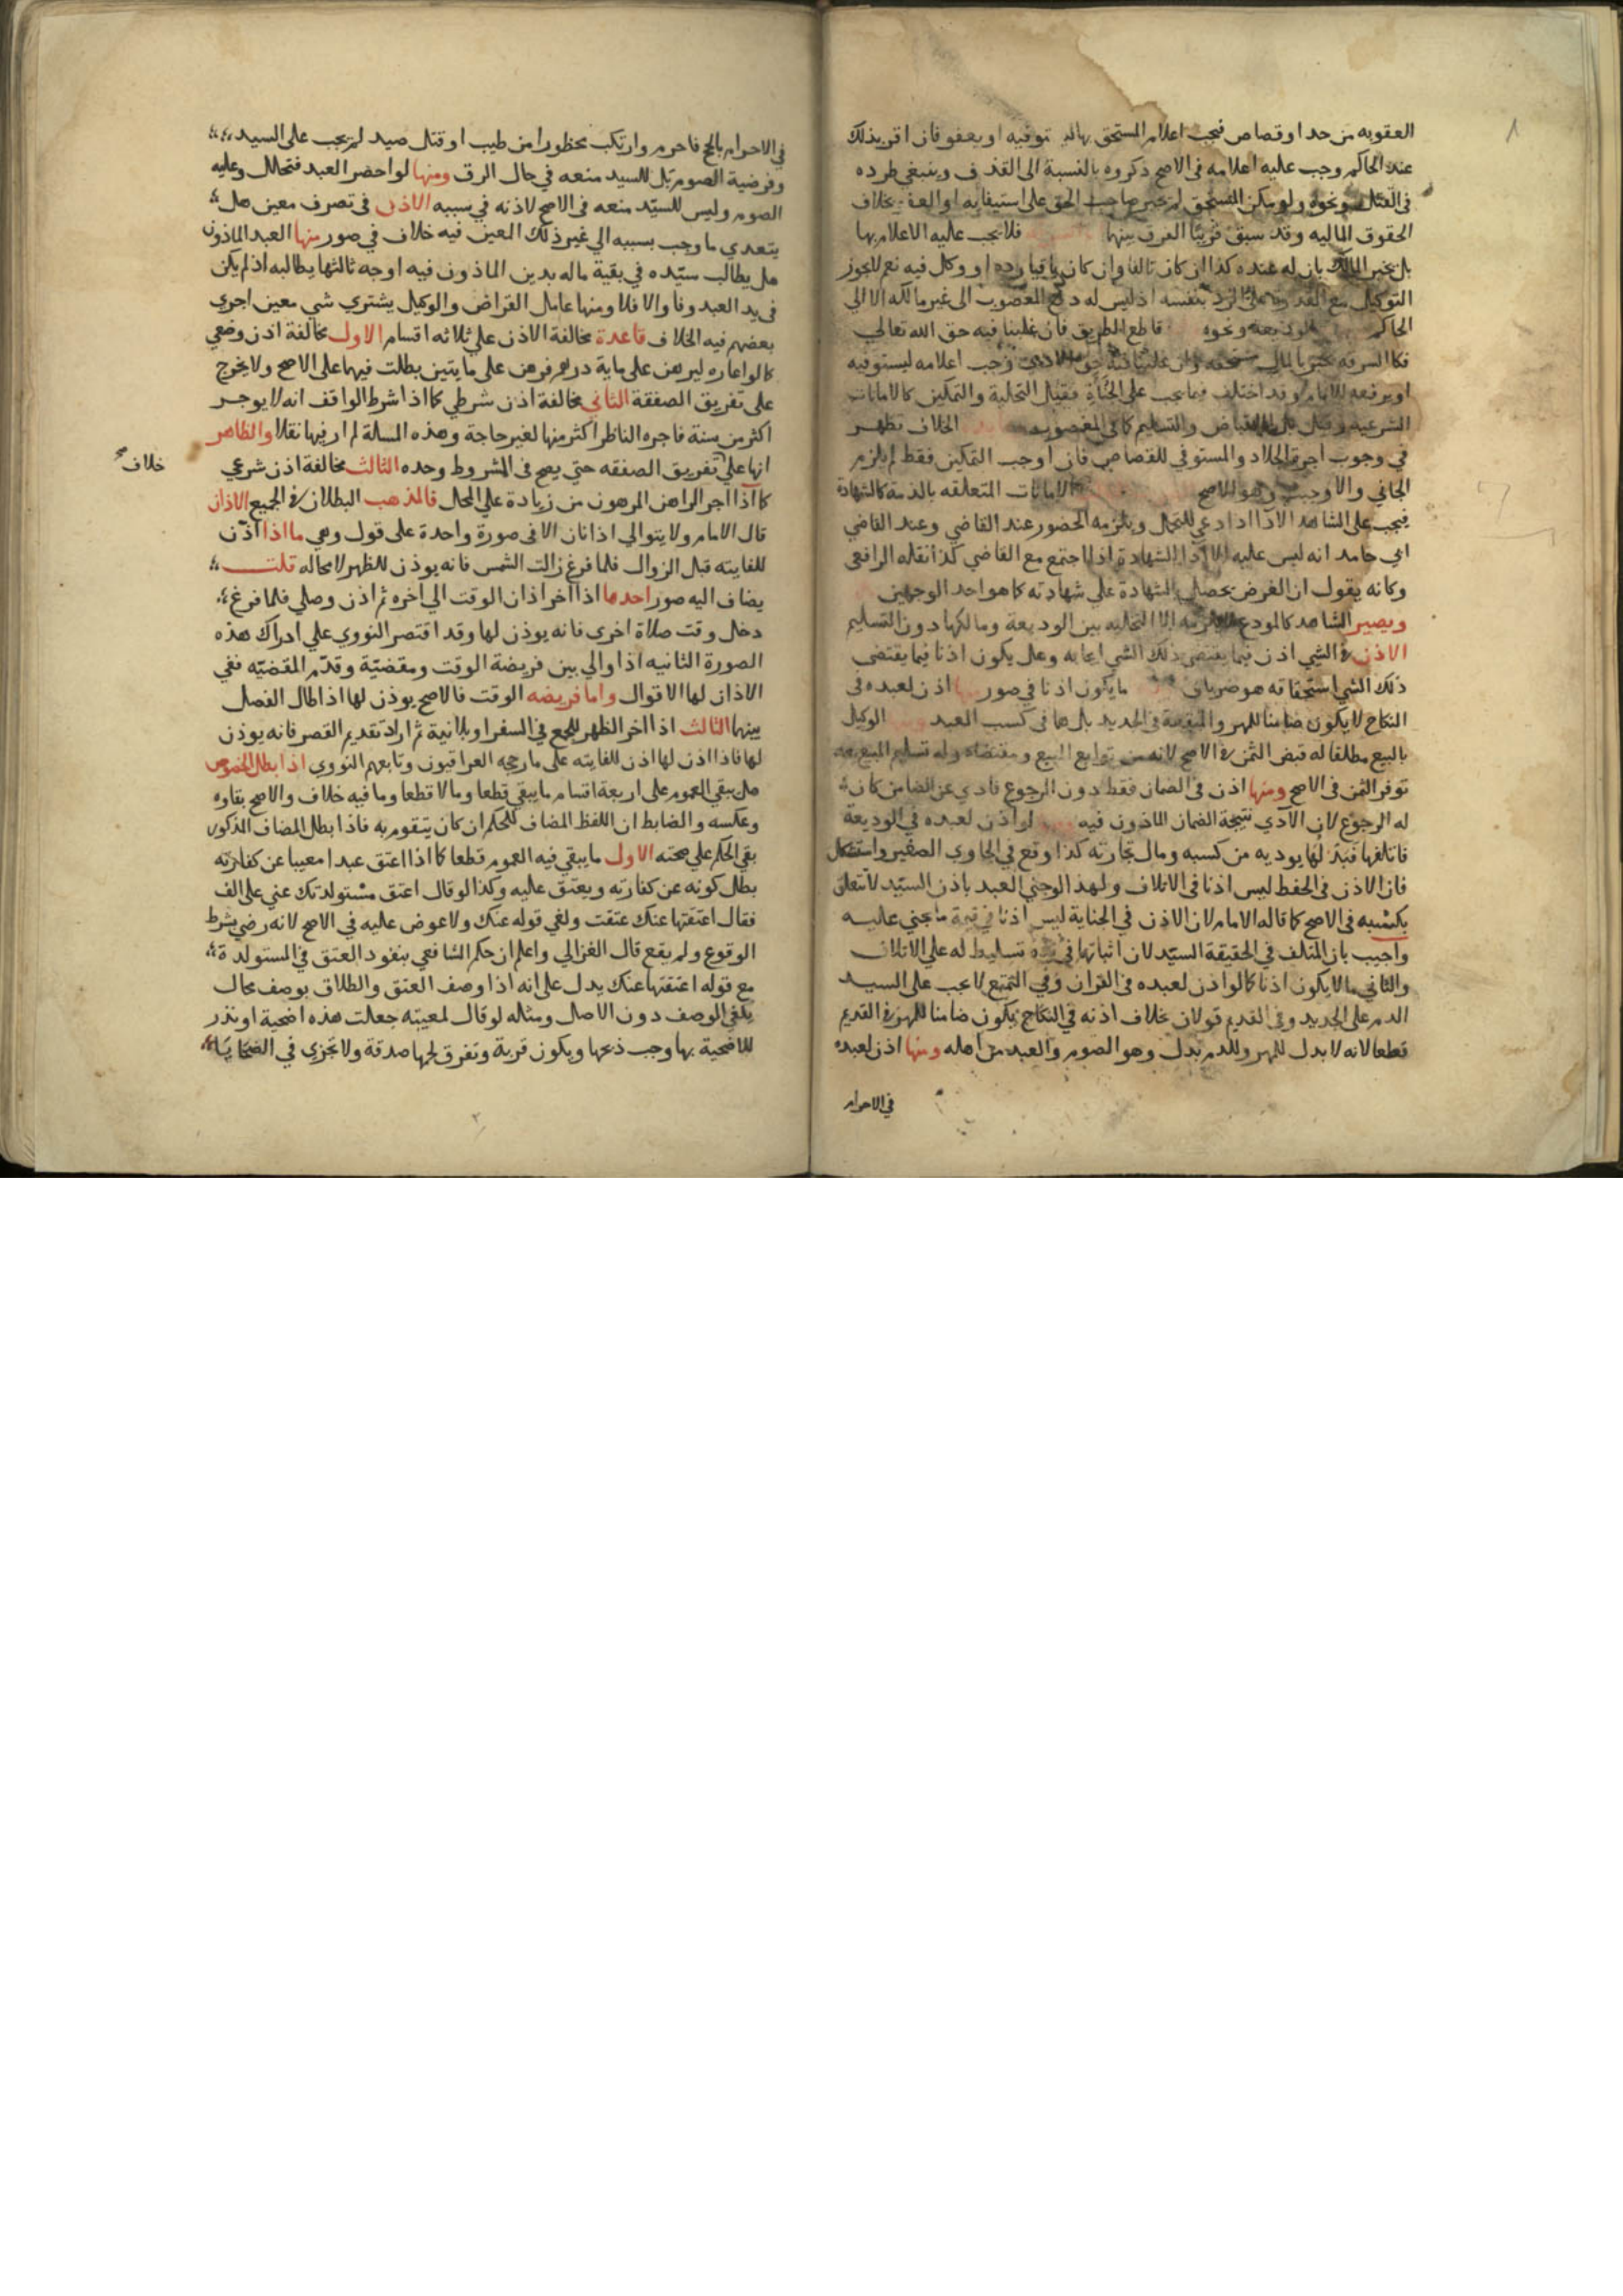 العقوبه من حد او قصاص فيجب اعلام المستحق بها توفيه او يعفو فان اقر بذلك
عند الحاكم وجب عليه اعلامه فى الاصح ذكروه بالنسبة الى القذف وينبغي طرده
فى القتل ونحوه ولو مكن المستحق لم يجبر صاحب الحق على استيفايه او العفو بخلاف
الحقوق الماليه وقد سبق قريبًا الفرق بينهما فلا يجب عليه الاعلام بها
بل يخير المالك بان له عنده كذا ان كان تالفا وان كان باقيا رده او وكل فيه نعم لا يجوز
التوكيل مع القدرة على الرد بنفسه اذ ليس له دفع المغصوب الى غير مالكه الا الى
الحاكم ونحوه قاطع الطريق فان غلبنا فيه حق الله تعالى
فكالسرقه يخبر بالمال مستحقه وان غلبنا فيه حق الادمى وجب اعلامه ليستوفيه
او يرفعه للامام وقد اختلف فيما يجب على الجناة فقيل التخلية والتمكين كالامانات
الشرعيه وقيل بل الاقباض والتسليم كما فى المغصوب الخلاف تظهر
في وجوب اجرة الجلاد والمستوفي للقصاص فان اوجب التمكين فقط لم يلزم
الجاني والا وجبت وهو الاصح الامانات المتعلقه بالذمة كالشهادة
فيجب على الشاهد الادآ اذا دعي للتحمل ويلزمه الحضور عند القاضي وعند القاضي
ابي حامد انه ليس عليه الا ادا الشهادة اذا اجتمع مع القاضي كذا نقله الرافعى
وكانه يقول ان الغرض يحصل بالشهادة علي شهادته كما هو احد الوجهين
ويصير الشاهد كالمودع لا يلزمه الا التخليه بين الوديعة ومالكها دون التسليم
الاذن في الشي اذن فيما يقتضى ذلك الشي ايجابه وهل يكون اذنا فيما يقتضى
ذلك الشي استحقاقه هو ضربان ما يكون اذنا في صور اذن لعبده فى
النكاح لا يكون ضامنا للمهر والنفقة فى الجديد بل هما فى كسب العبد الوكيل
بالبيع مطلقا له قبض الثمن في الاصح لانه من توابع البيع ومقتضاه وله تسليم المبيع بعد
توفر الثمن فى الاصح ومنها اذن فى الضمان فقط دون الرجوع فادي عن الضامن كان
له الرجوع لان الآدي نتيجة الضمان الماذون فيه لو اذن لعبده في الوديعة
فاتلفها فبدلها يوديه من كسبه ومال تجارته كذا وقع في الحاوي الصغير واستشكل
فان الاذن فى الحفظ ليس اذنا فى الاتلاف ولهذا لو جني العبد باذن السيّد لا تتعلق
بكسبه فى الاصح كما قاله الامام لان الاذن في الجناية ليس اذنا في قيمة ما يجني عليه
واجيب بان المتلف في الحقيقة السيّد لان اثباتها في يده تسليط له علي الاتلاف
والثاني ما لا يكون اذنا كما لو اذن لعبده فى القران وفي التمتع لا يجب على السيد
الدم على الجديد وفى القديم قولان بخلاف اذنه في النكاح يكون ضامنا للمهر في القديم
قطعا لانه لا بدل للمهر وللدم بدل وهو الصوم والعبد من اهله ومنها اذن لعبده
في الاحرام
في الاحرام بالحج فاحرم وارتكب محظورا من طيب او قتل صيد لم يجب على السيد
وفرضية الصوم بل للسيد منعه في حال الرق ومنها لو احصر العبد فتحلل وعليه
الصوم وليس للسيّد منعه فى الاصح لاذنه في سببه الاذن فى تصرف معين هل
يتعدي ما وجب بسببه الي غير ذلك المعين فيه خلاف في صور منها العبد الماذون
هل يطالب سيّده في بقية ماله بدين الماذون فيه اوجه ثالثها يطالبه اذ لم يكن
فى يد العبد وفا والا فلا ومنها عامل القراض والوكيل يشتري شي معين اجري
بعضهم فيه الخلاف قاعدة مخالفة الاذن علي ثلاثه اقسام الاول مخالفة اذن وضعي
كما لو اعاره ليرهن على ماية درهم فرهن على مايتين بطلت فيها على الاصح ولا يخرج
على تفريق الصفقة الثاني مخالفة اذن شرطي كما اذا شرط الواقف انه لا يوجر
اكثر من سنة فاجره الناظر اكثر منها لغير حاجة وهذه المسالة لم ار فيها نقلا والظاهر
انها علي تفريق الصفقه حتي يصح فى المشروط وحده الثالث مخالفة اذن شرعي
خلاف
كما اذا اجر الراهن المرهون من زيادة علي المحل فالمذهب البطلان في الجميع الاذان
قال الامام ولا يتوالي اذانان الا فى صورة واحدة على قول وهي ما اذا اذّن
للفايته قبل الزوال فلما فرغ زالت الشمس فانه يوذن للظهر لا محاله قلت
يضاف اليه صور احدها اذا اخر اذان الوقت الي اخره ثم اذن وصلي فلما فرغ
دخل وقت صلاة اخرى فانه يوذن لها وقد اقتصر النووي علي ادراك هذه
الصورة الثانيه اذا والي بين فريضة الوقت ومقضيّة وقدّم المقضيّه ففي
الاذان لها الاقوال واما فريضه الوقت فالاصح يوذن لها اذا طال الفصل
بينهما الثالث اذا اخر الظهر للجمع في السفر او بلا نية ثم اراد تقديم القصر فانه يوذن
لها فاذا اذن لها اذن للفايته على ما رجحه العراقيون وتابعهم النووي اذا بطل الخصوص
هل يبقي العموم على اربعة اقسام ما يبقي قطعا وما لا قطعا وما فيه خلاف والاصح بقاوه
وعكسه والضابط ان اللفظ المضاف للحكم ان كان يتقوم به فاذا بطل المضاف المذكور
بقي الحكم علي صحته الاول ما يبقي فيه العموم قطعا كما اذا اعتق عبدا معيبا عن كفارته
بطل كونه عن كفارته ويعتق عليه وكذا لو قال اعتق مستولدتك عني على الف
فقال اعتقتها عنك عتقت ولغي قوله عنك ولا عوض عليه في الاصح لانه رضي بشرط
الوقوع ولم يقع قال الغزالي واعلم ان حكم الشافعي بنفود العتق في المستولدة
مع قوله اعتقتها عنك يدل على انه اذا وصف العتق والطلاق بوصف محال
يلغي الوصف دون الاصل ومثله لو قال لمعيبة جعلت هذه اضحية او نذر
للاضحية بها وجب ذبحها ويكون قربة وتفرق لحمها صدقة ولا تجزي في الضحايا